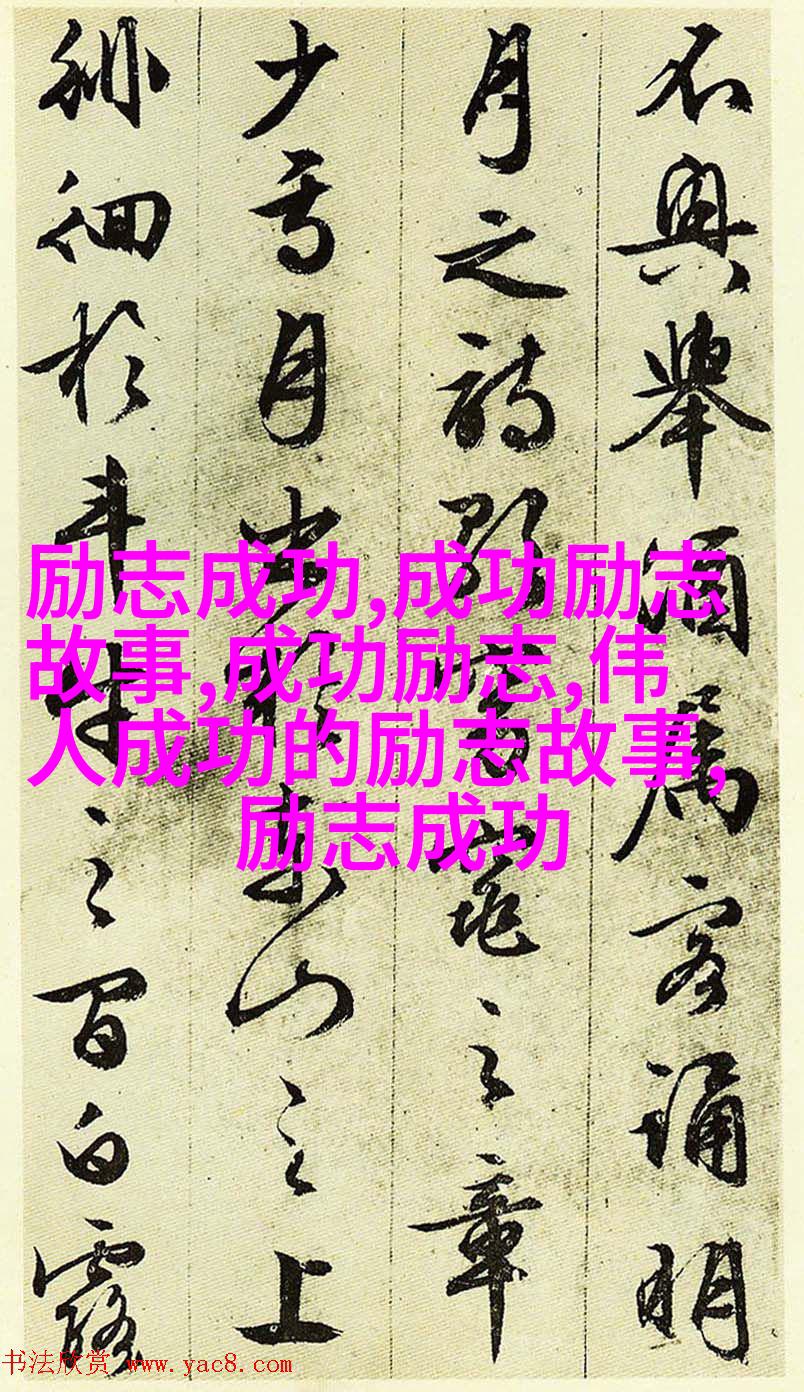 不興舉酒属客誦明
月之詩歌窈窕之章
少焉月出於東山之上
徘徊於斗牛之間白露
励志成功,成功励志
故事,成功励志,伟
人成功的励志故事,
励志成功
书法欣赏 www.yac8.com